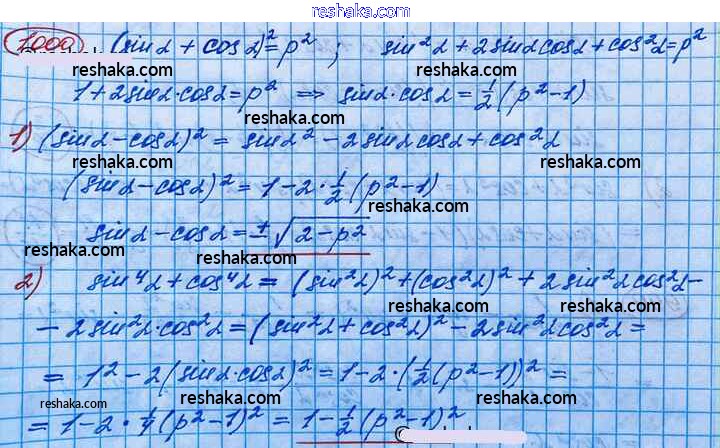 www.reshaka.com
1000 (sinα + cosα)²=p² ; sin²α+2sinαcosα+cos²α=p²
reshaka.com reshaka.com
1+2sinα·cosα=p² ⇒ sinα·cosα=½(p²-1)
reshaka.com reshaka.com
1) (sinα-cosα)² = sinα² - 2sinαcosα + cos²α
reshaka.com
(sinα-cosα)² = 1-2·½(p²-1)
reshaka.com
sinα-cosα=±√2-p²
reshaka.com reshaka.com
2) sin⁴α+cos⁴α= (sin²α)²+(cos²α)²+2sin²αcos²α-
reshaka.com
-2sin²α·cos²α=(sin²α+cos²α)²-2sin²αcos²α=
reshaka.com
= 1²-2(sinα·cosα)²=1-2·(½(p²-1))²=
reshaka.com reshaka.com
=1-2·¼(p²-1)²=1-½(p²-1)²
reshaka.com